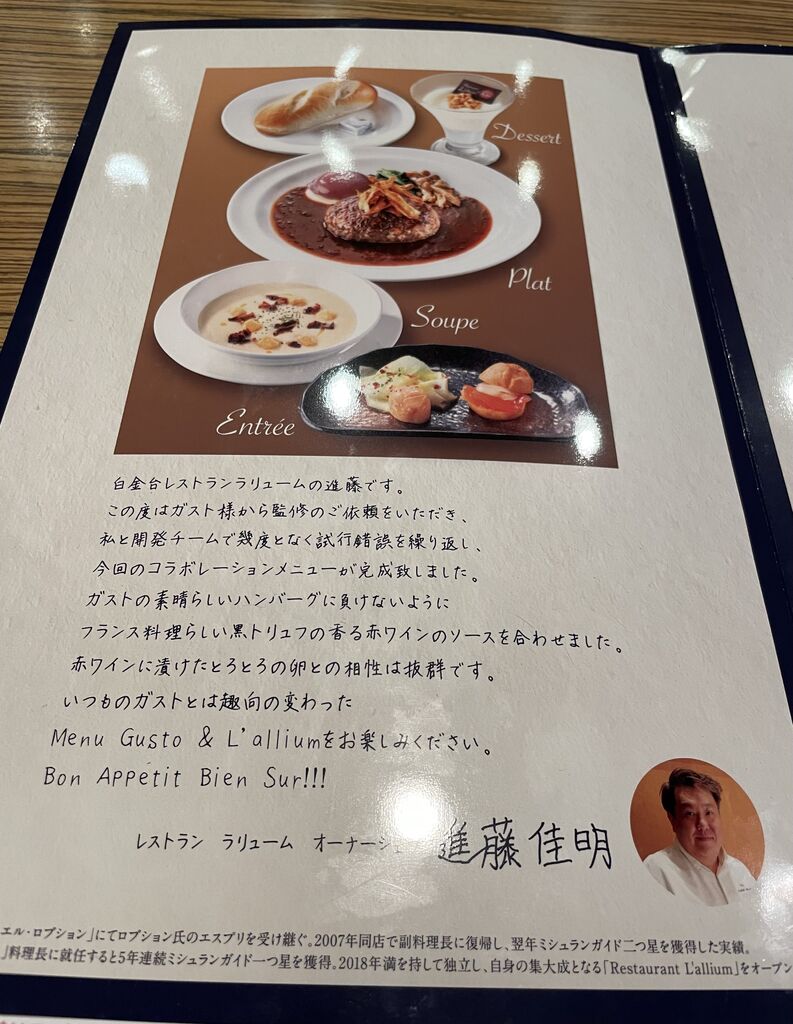 Dessert
Plat
Soupe
Entrée
白金台レストランラリュームの進藤です。
この度はガスト様から監修のご依頼をいただき、
私と開発チームで幾度となく試行錯誤を繰り返し、
今回のコラボレーションメニューが完成致しました。
ガストの素晴らしいハンバーグに負けないように
フランス料理らしい黒トリュフの香る赤ワインのソースを合わせました。
赤ワインに漬けたとろとろの卵との相性は抜群です。
いつものガストとは趣向の変わった
Menu Gusto & L'alliumをお楽しみください。
Bon Appétit Bien Sur!!!
レストラン ラリューム オーナーシェ 進藤佳明
エル・ロブション」にてロブション氏のエスプリを受け継ぐ。2007年同店で副料理長に復帰し、翌年ミシュランガイド二つ星を獲得した実績。
」料理長に就任すると5年連続ミシュランガイド一つ星を獲得。2018年満を持して独立し、自身の集大成となる「Restaurant L'allium」をオープン